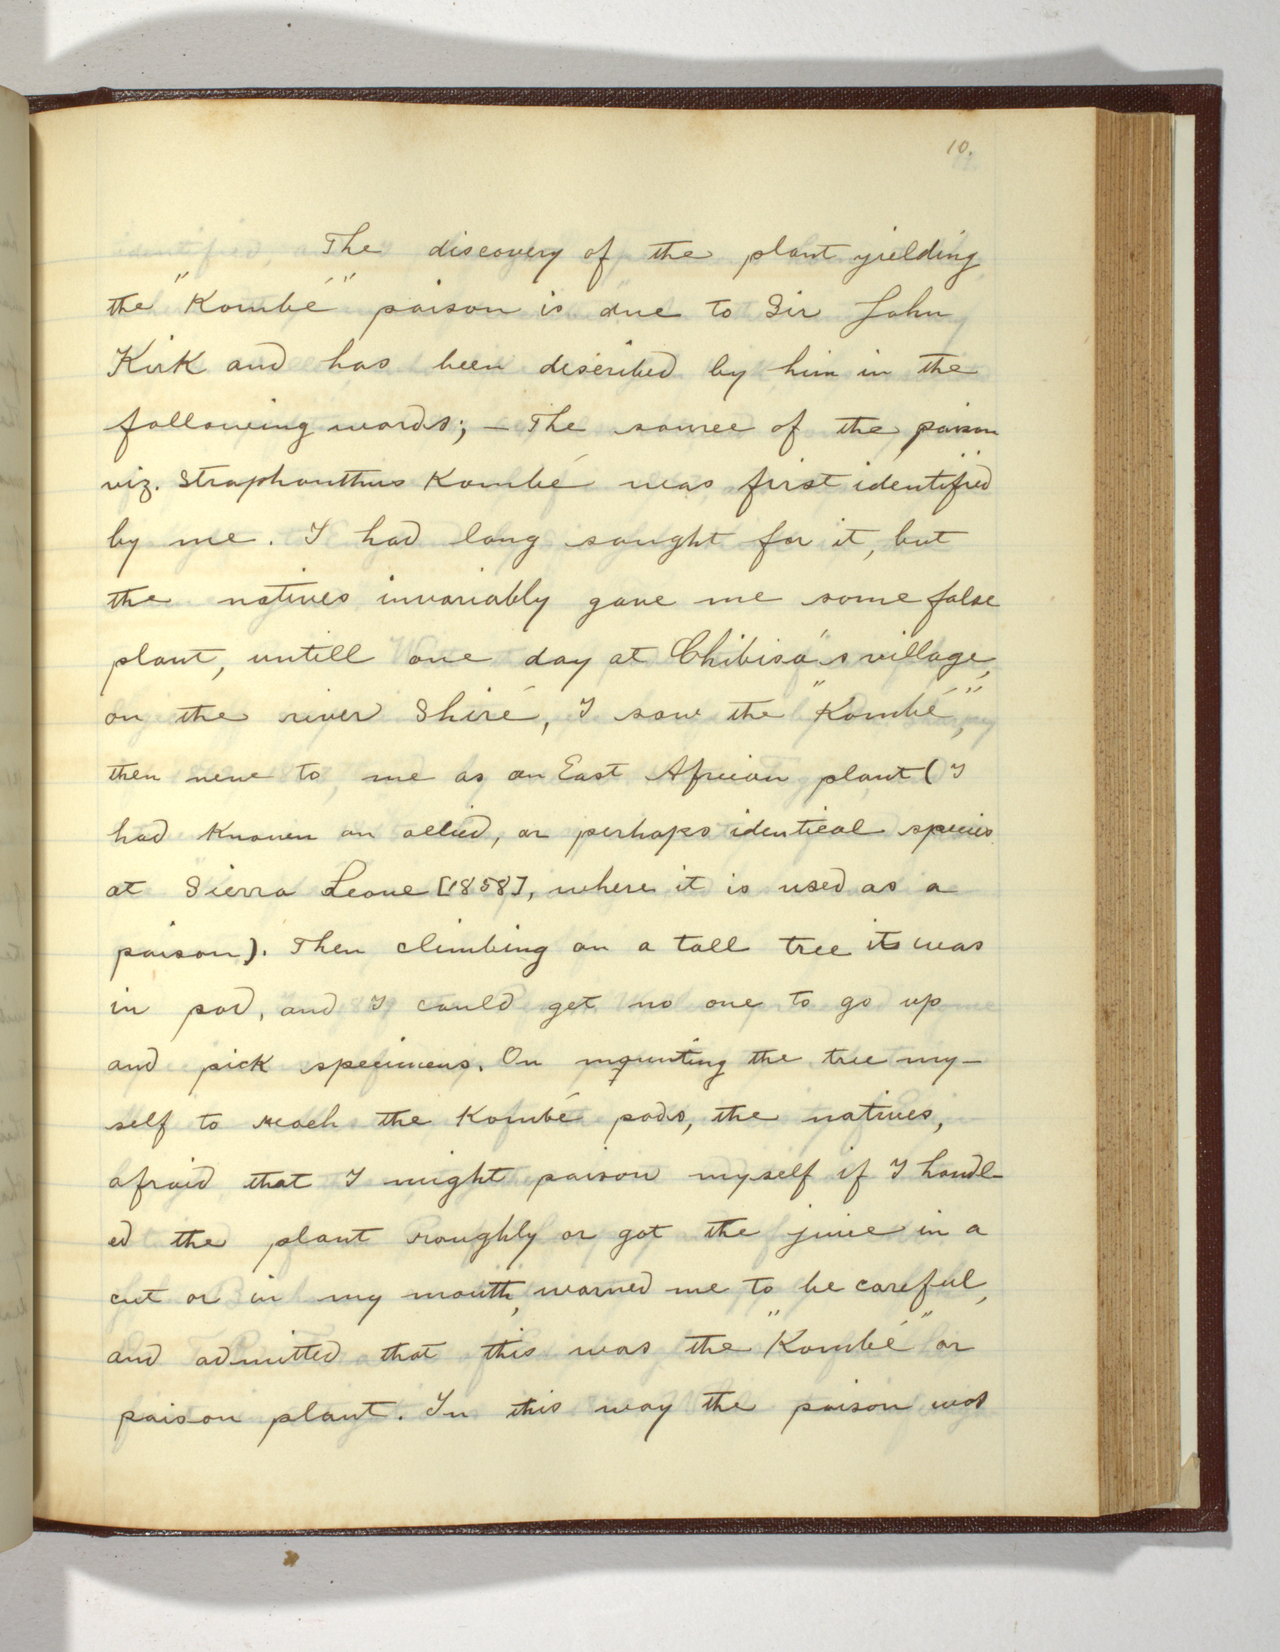 10.
The discovery of the plant yielding
the "Kombé" poison is due to Sir John
Kirk and has been described by him in the
following words; — The source of the poison
viz. Strophanthus Kombé was first identified
by me. I had long sought for it, but
the natives invariably gave me some false
plant, untill one day at Chibisa's village,
on the river Shiré, I saw the "Kombé",
then new to me as an East African plant (I
had known an allied, or perhaps identical species
at Sierra Leone [1858], where it is used as a
poison). Then climbing on a tall tree it was
in pod, and I could get no one to go up
and pick specimens. On mounting the tree my-
self to reach the Kombé pods, the natives,
afraid that I might poison myself if I handl-
ed the plant roughly or got the juice in a
cut or in my mouth, warned me to be careful,
and admitted that this was the "Kombé" or
poison plant. In this way the poison was